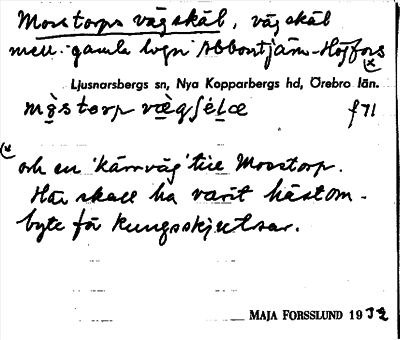 Mosstorps vägskäl, vägskäl
mell. gamla lvgn Abbortjärn-Högfors
(x
Ljusnarsbergs sn, Nya Kopparbergs hd, Örebro län.
mòstorp vègʃélæ f 71
(x och en 'kärrväg' till Mosstorp.
Här skall ha varit hästom-
byte för kungsskjutsar.
MAJA FORSSLUND 1932